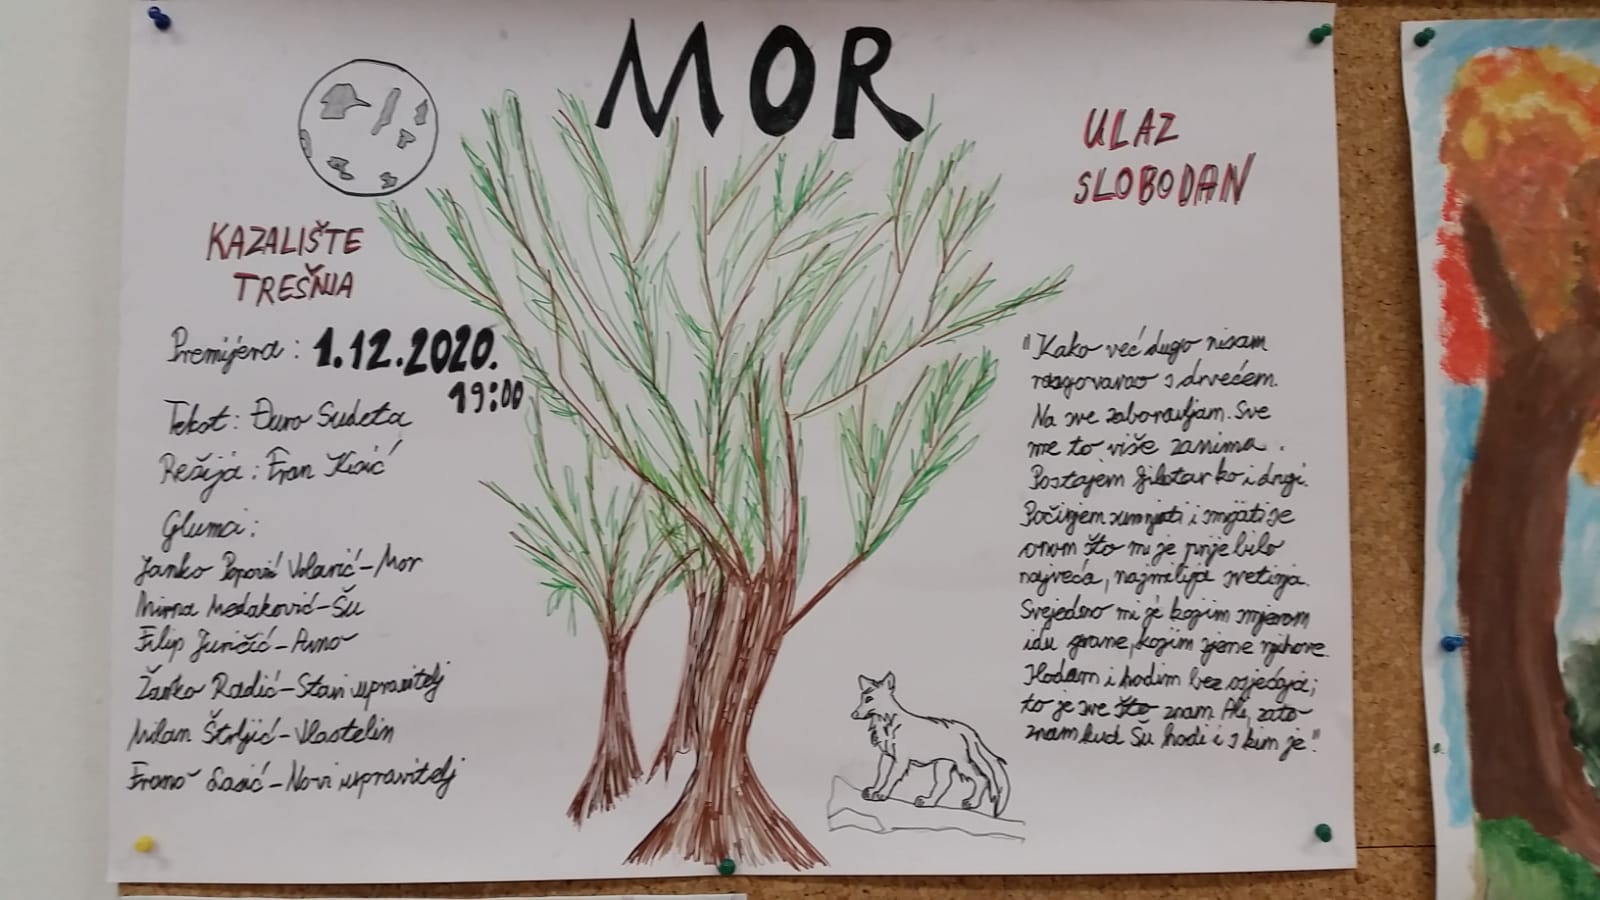 MOR
KAZALIŠTE
TREŠNJA
Premijera: 1.12.2020.
19:00
Tekst: Đuro Sudeta
Režija: Fran
Gluma:
Janko Popović Volarić - Mor
Mirna Medaković - Šu
Filip Juričić - Arno
Žarko Radić - Stari upravitelj
Milan Štrljić - Vlastelin
Frano Lasić - Novi upravitelj
ULAZ
SLOBODAN
"Kako već dugo nisam
razgovarao s drvećem.
Na sve zaboravljam. Sve
me to više zanima.
Postajem i drugi.
Počinjem sumnjati i smijati se
onom što mi je prije bilo
najveća, najmilija svetinja.
Svejedno mi je kojim smjerom
idu grane, kojim sjene njihove.
Hodam i hodim bez osjećaja;
to je sve što znam. Ali, zato
znam kud Šu hodi i s kim je".